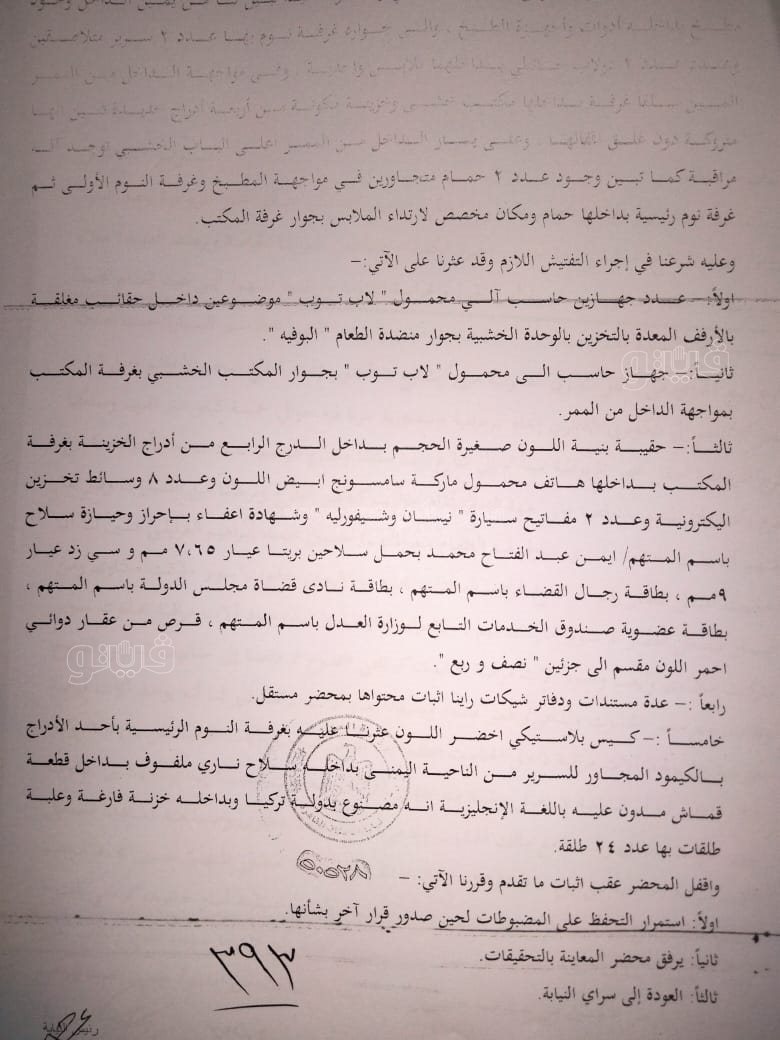 مطبخ بداخله أدوات وأجهزة الطبخ ، والى جواره غرفة نوم بها عدد ٢ سرير متلاصقين
وعدد ٢ دولاب بداخلهما ملابس وأحذية ، وفى مواجهة الداخل من الممر
غرفة بداخلها مكتب خشبى وخزينة مكونة من أربعة أدراج حديدية تبين انها
متروكة دون غلق ، وعلى يسار الداخل من الممر اعلى الباب الخشبي توجد
مراقبة كما تبين وجود عدد ٢ حمام متجاورين في مواجهة المطبخ وغرفة النوم الأولى ثم
غرفة نوم رئيسية بداخلها حمام ومكان مخصص لارتداء الملابس بجوار غرفة المكتب.
وعليه شرعنا في إجراء التفتيش اللازم وقد عثرنا على الآتي:–
اولاً:– عدد جهازين حاسب آلي محمول " لاب توب " موضوعين داخل حقائب مغلقة
بالأرفف المعدة بالتخزين بالوحدة الخشبية بجوار منضدة الطعام " البوفيه ".
ثانياً:– جهاز حاسب الى محمول " لاب توب " بجوار المكتب الخشبي بغرفة المكتب
بمواجهة الداخل من الممر.
ثالثاً:– حقيبة بنية اللون صغيرة الحجم بداخل الدرج الرابع من أدراج الخزينة بغرفة
المكتب بداخلها هاتف محمول ماركة سامسونج ابيض اللون وعدد ٨ وسائط تخزين
اليكترونية وعدد ٢ مفاتيح سيارة " نيسان وشيفورليه " وشهادة اعفاء بإحراز وحيازة سلاح
باسم المتهم/ ايمن عبد الفتاح محمد بحمل سلاحين بريتا عيار ٧،٦٥ مم و سي زد عيار
٩مم ، بطاقة رجال القضاء باسم المتهم ، بطاقة نادى قضاة مجلس الدولة باسم المتهم ،
بطاقة عضوية صندوق الخدمات التابع لوزارة العدل باسم المتهم ، قرص من عقار دوائي
احمر اللون مقسم الى جزئين " نصف و ربع ".
رابعاً :– عدة مستندات ودفاتر شيكات راينا اثبات محتواها بمحضر مستقل.
خامساً :– كيس بلاستيكي اخضر اللون عثرنا عليه بغرفة النوم الرئيسية بأحد الأدراج
بالكيمود المجاور للسرير من الناحية اليمنى بداخله سلاح ناري ملفوف بداخل قطعة
قماش مدون عليه باللغة الإنجليزية انه مصنوع بدولة تركيا وبداخله خزنة فارغة وعلبة
طلقات بها عدد ٢٤ طلقة.
واقفل المحضر عقب اثبات ما تقدم وقررنا الآتي: –
اولاً: استمرار التحفظ على المضبوطات لحين صدور قرار آخر بشأنها.
ثانياً: يرفق محضر المعاينة بالتحقيقات.
ثالثاً: العودة إلى سراي النيابة.
٣٩٣
رئيس النيابة